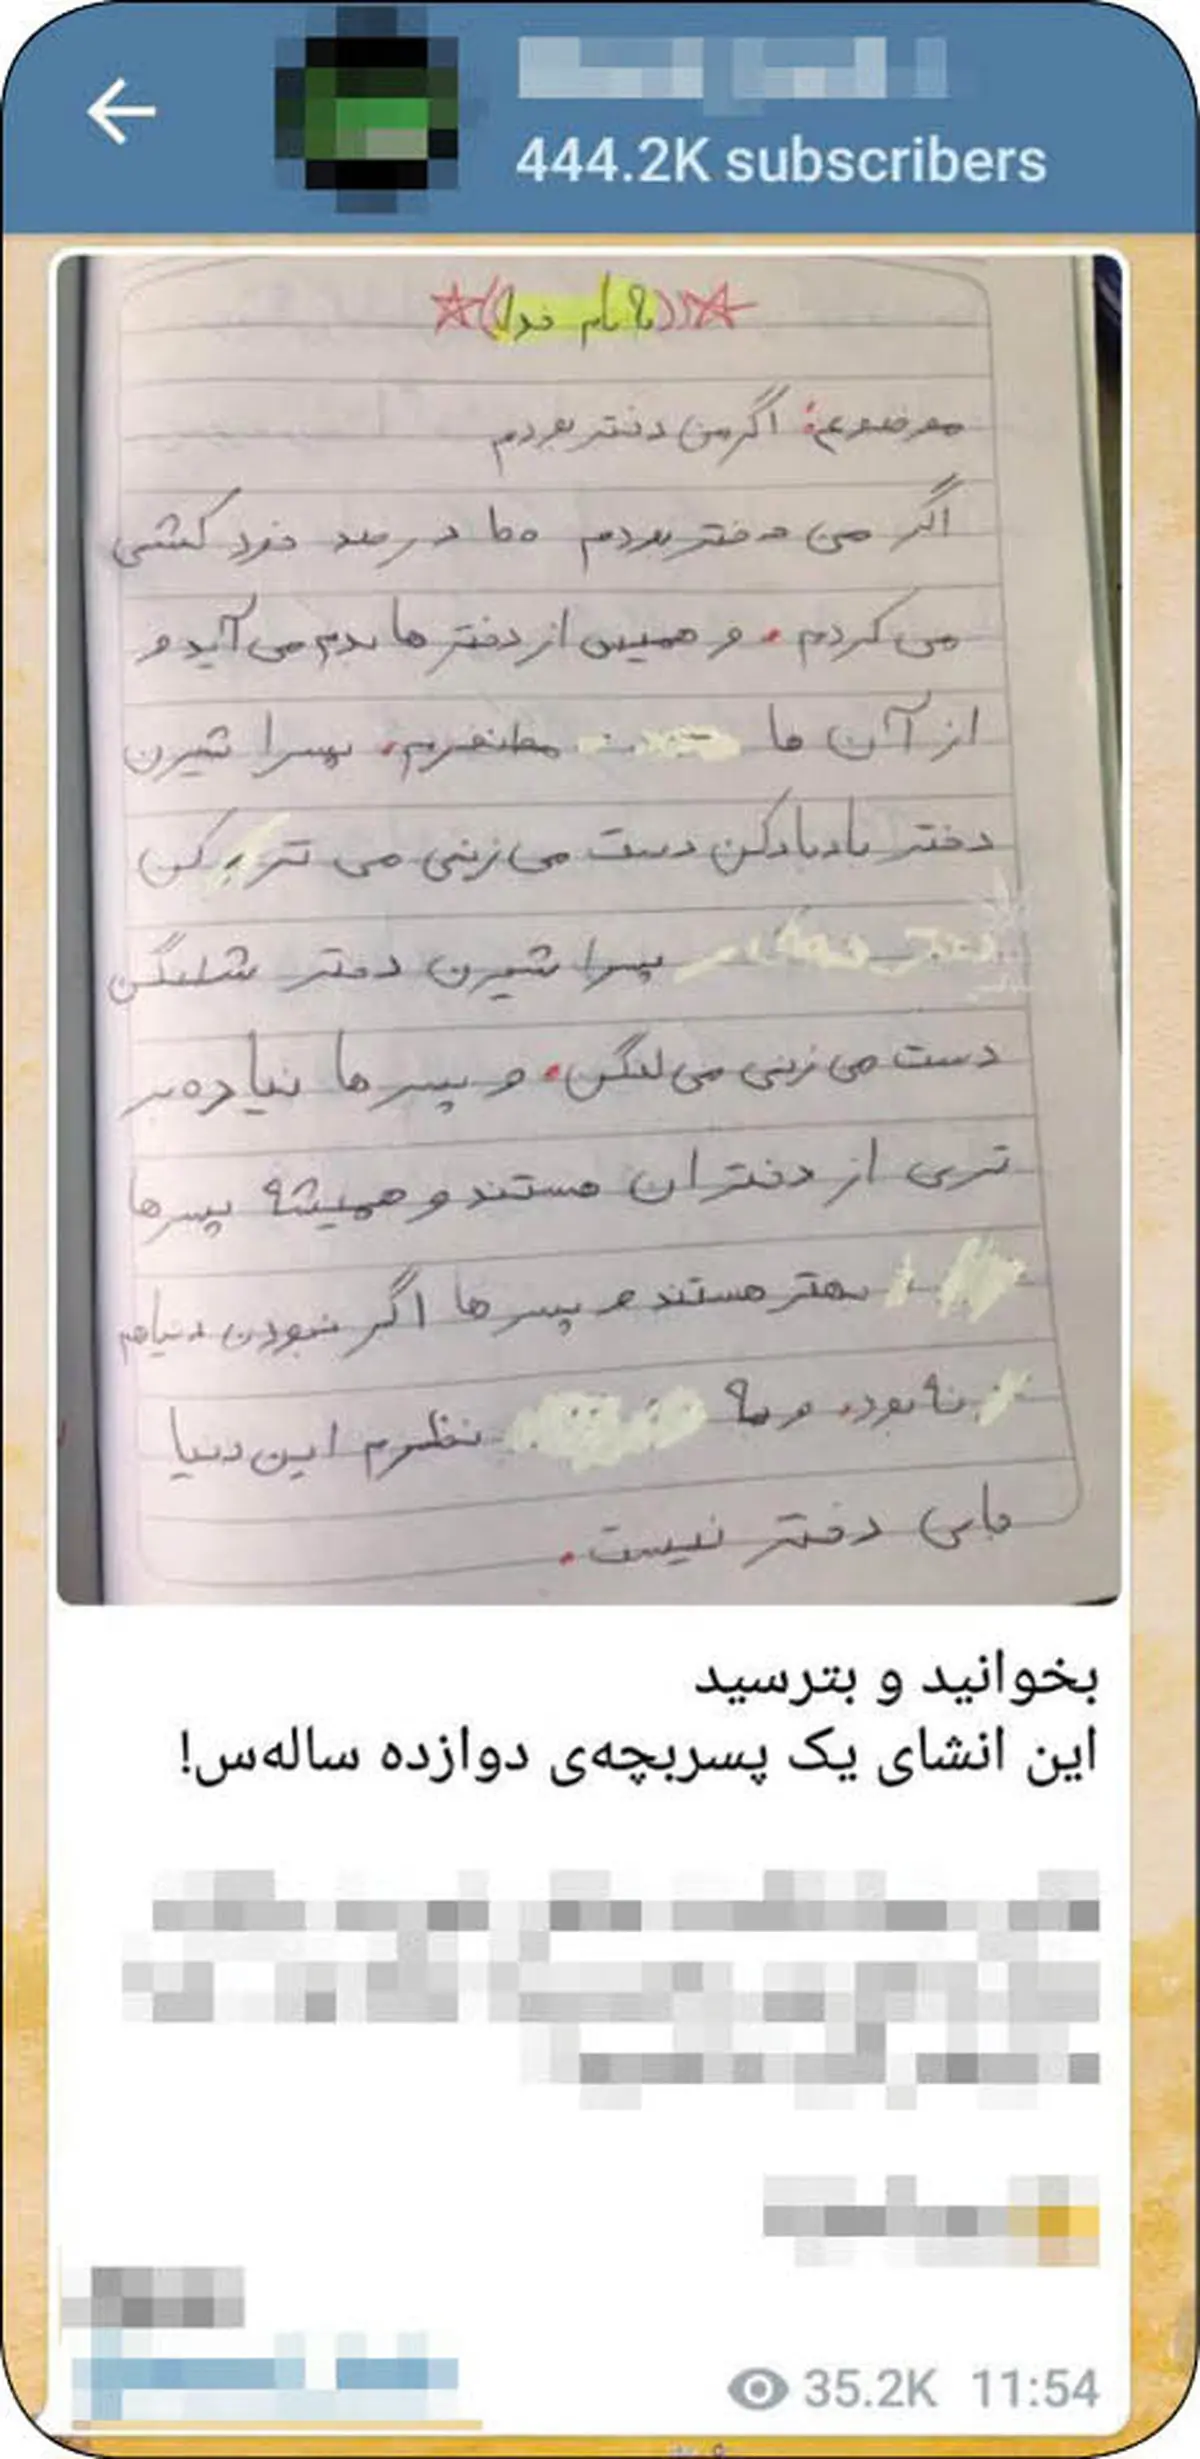 444.2K subscribers
((به نام خدا))
موضوع: اگر من دختر بودم
اگر من دختر بودم ۱۰۰ درصد خودکشی
می کردم. و همچین از دختر ها بدم می آید و
از آن ها متنفرم. پسرا شیرن
دختر بادبادکن دست می زینی می ترکن
پسرا شیرن دختر شلنگن
دست می زینی می لنگن. و پسر ها نیاده بر
تری از دختران هستند و همیشه پسرها
بهتر هستند و پسر ها اگر نبودن دنیا هم
نه بود. و به نظرم این دنیا
جایی دختر نیست.
بخوانید و بترسید
این انشای یک پسربچه‌ی دوازده ساله‌س!
35.2K 11:54